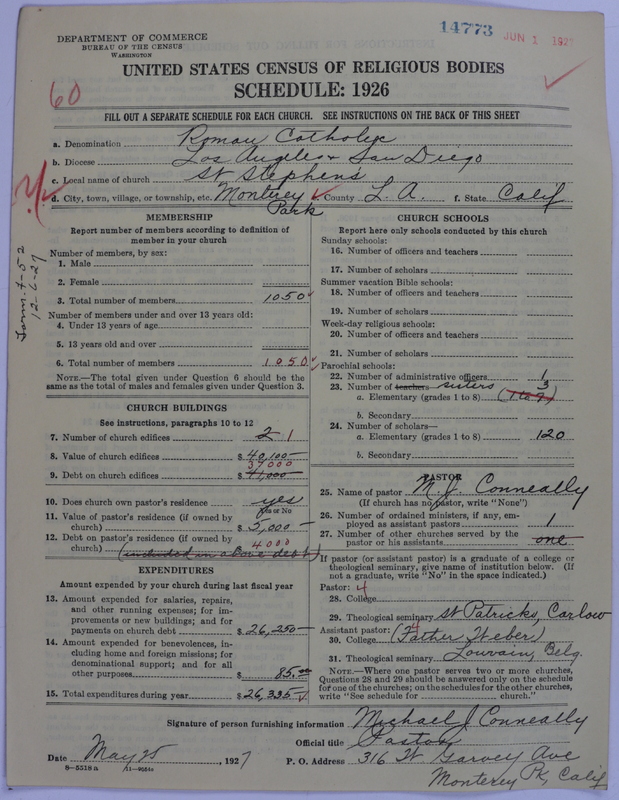 14773
JUN 1 192
DEPARTMENT OF COMMERCE
BUREAU OF THE CENSUS
WASHINGTON
UNITED STATES CENSUS OF RELIGIOUS BODIES
SCHEDULE: 1926
60
FILL OUT A SEPARATE SCHEDULE FOR EACH CHURCH. SEE INSTRUCTIONS ON THE BACK OF THIS SHEET
a. Denomination Roman Catholic
b. Diocese Los Angeles & San Diego
c. Local name of church St Stephens
d. City, town, village, or township, etc. Monterey Park County L. A. f. State Calif
MEMBERSHIP
Report number of members according to definition of member in your church
Number of members, by sex:
1. Male
2. Female
3. Total number of members 1050
Number of members under and over 13 years old:
4. Under 13 years of age
5. 13 years old and over
6. Total number of members 1050
NOTE.—The total given under Question 6 should be the
same as the total of males and females given under Question 3.
CHURCH BUILDINGS
See instructions, paragraphs 10 to 12
7. Number of church edifices 2 1
8. Value of church edifices $ 40,100
37000
9. Debt on church edifices $ 41,000
10. Does church own pastor's residence yes
Yes or No
11. Value of pastor's residence (if owned by
church) $ 5,000
12. Debt on pastor's residence (if owned by
4000
church) (included in above debt)
EXPENDITURES
Amount expended by your church during last fiscal year
13. Amount expended for salaries, repairs,
and other running expenses; for im-
provements or new buildings; and for
payments on church debt $ 26,250
14. Amount expended for benevolences, in-
cluding home and foreign missions; for
denominational support; and for all
other purposes $ 85.00
15. Total expenditures during year $ 26,335
CHURCH SCHOOLS
Report here only schools conducted by this church
Sunday schools:
16. Number of officers and teachers
17. Number of scholars
Summer vacation Bible schools:
18. Number of officers and teachers
19. Number of scholars
Week-day religious schools:
20. Number of officers and teachers
21. Number of scholars
Parochial schools:
22. Number of administrative officers 1
23. Number of teachers sisters 3
a. Elementary (grades 1 to 8) (1 to 7)
b. Secondary
24. Number of scholars—
a. Elementary (grades 1 to 8) 120
b. Secondary
PASTOR
25. Name of pastor M. J. Conneally
(If church has no pastor, write "None")
26. Number of ordained ministers, if any, em-
ployed as assistant pastors 1
27. Number of other churches served by the
pastor or his assistants one
If pastor (or assistant pastor) is a graduate of a college or
theological seminary, give name of institution below. (If
not a graduate, write "No" in the space indicated.)
Pastor: 4
28. College
29. Theological seminary St Patricks, Carlow
Assistant pastor: (Father Weber)
30. College
31. Theological seminary Louvain, Belg.
NOTE.—Where one pastor serves two or more churches,
Questions 28 and 29 should be answered only on the schedule
for one of the churches; on the schedules for the other churches,
write "See schedule for church."
Signature of person furnishing information Michael J Conneally
Official title Pastor
Date May 25, 1927
P. O. Address 316 W Garvey Ave
Monterey Pk, Calif
8—5518 a